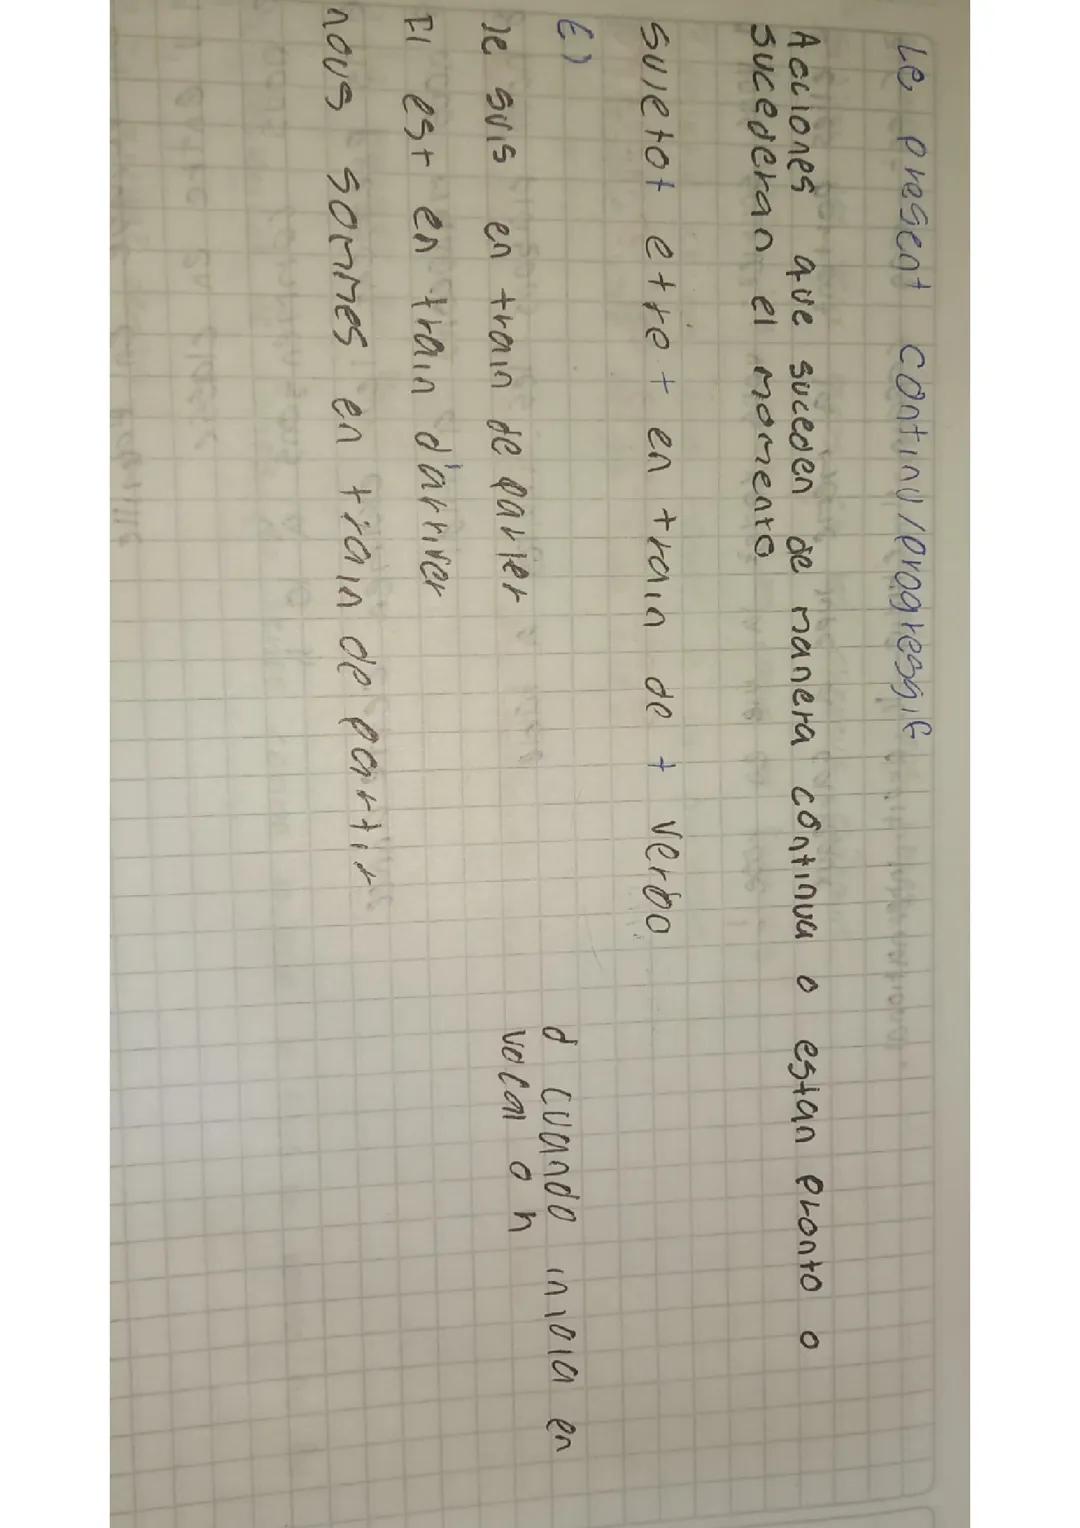 Le present continu/progressif
Acciones que suceden de manera continua o estan pronto o
sucederan el momento
Sujeto+ etre + en train de + verbo
E)
Je suis en train de parler
Il est en train d'arriver
nous sommes en train de partir
d' cuando inicia en
vocal o h